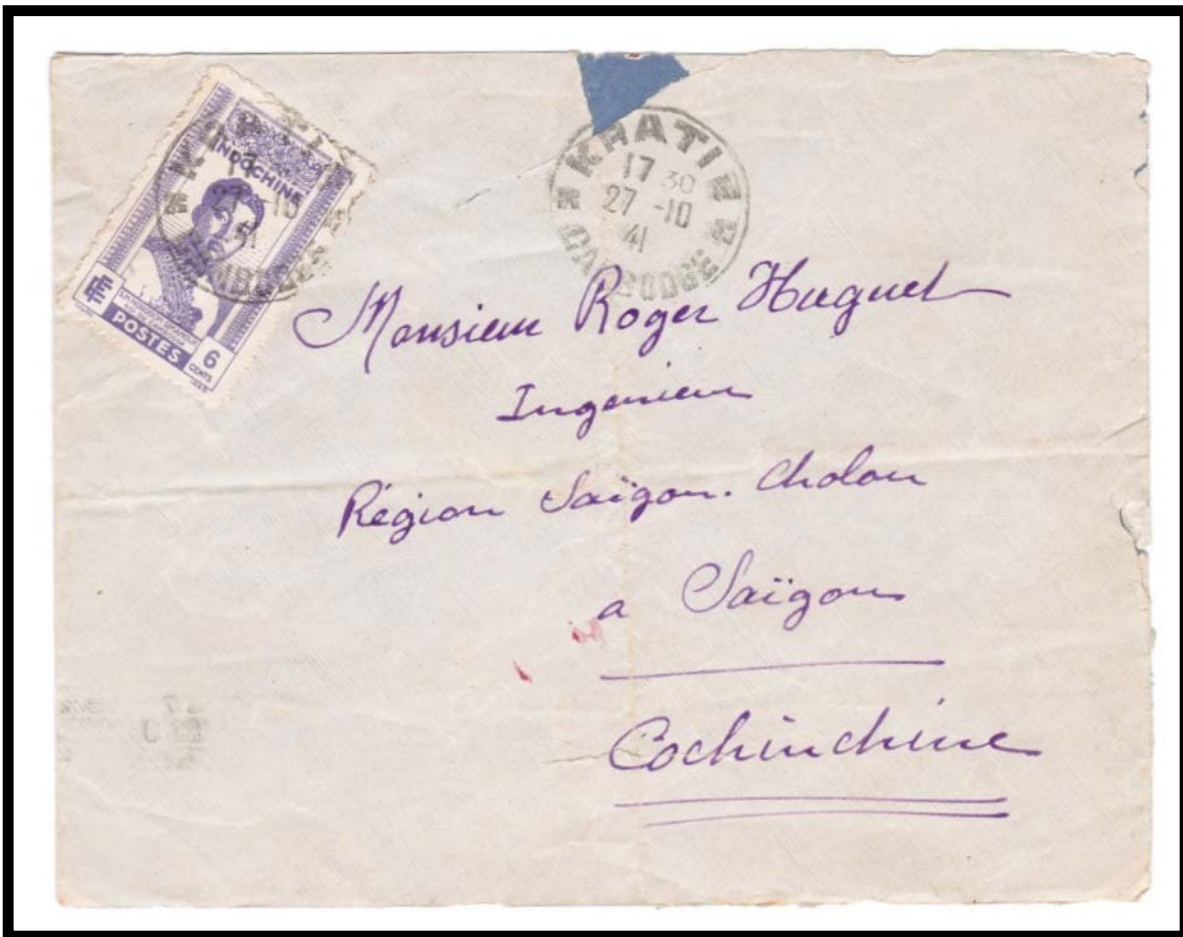 INDOCHINE
POSTES
6
CENTS
KRATIE
17 30
27 -10
41
CAMBODGE
Monsieur Roger Huguet
Ingenieur
Région Saïgon. Cholon
a Saïgon
Cochinchine